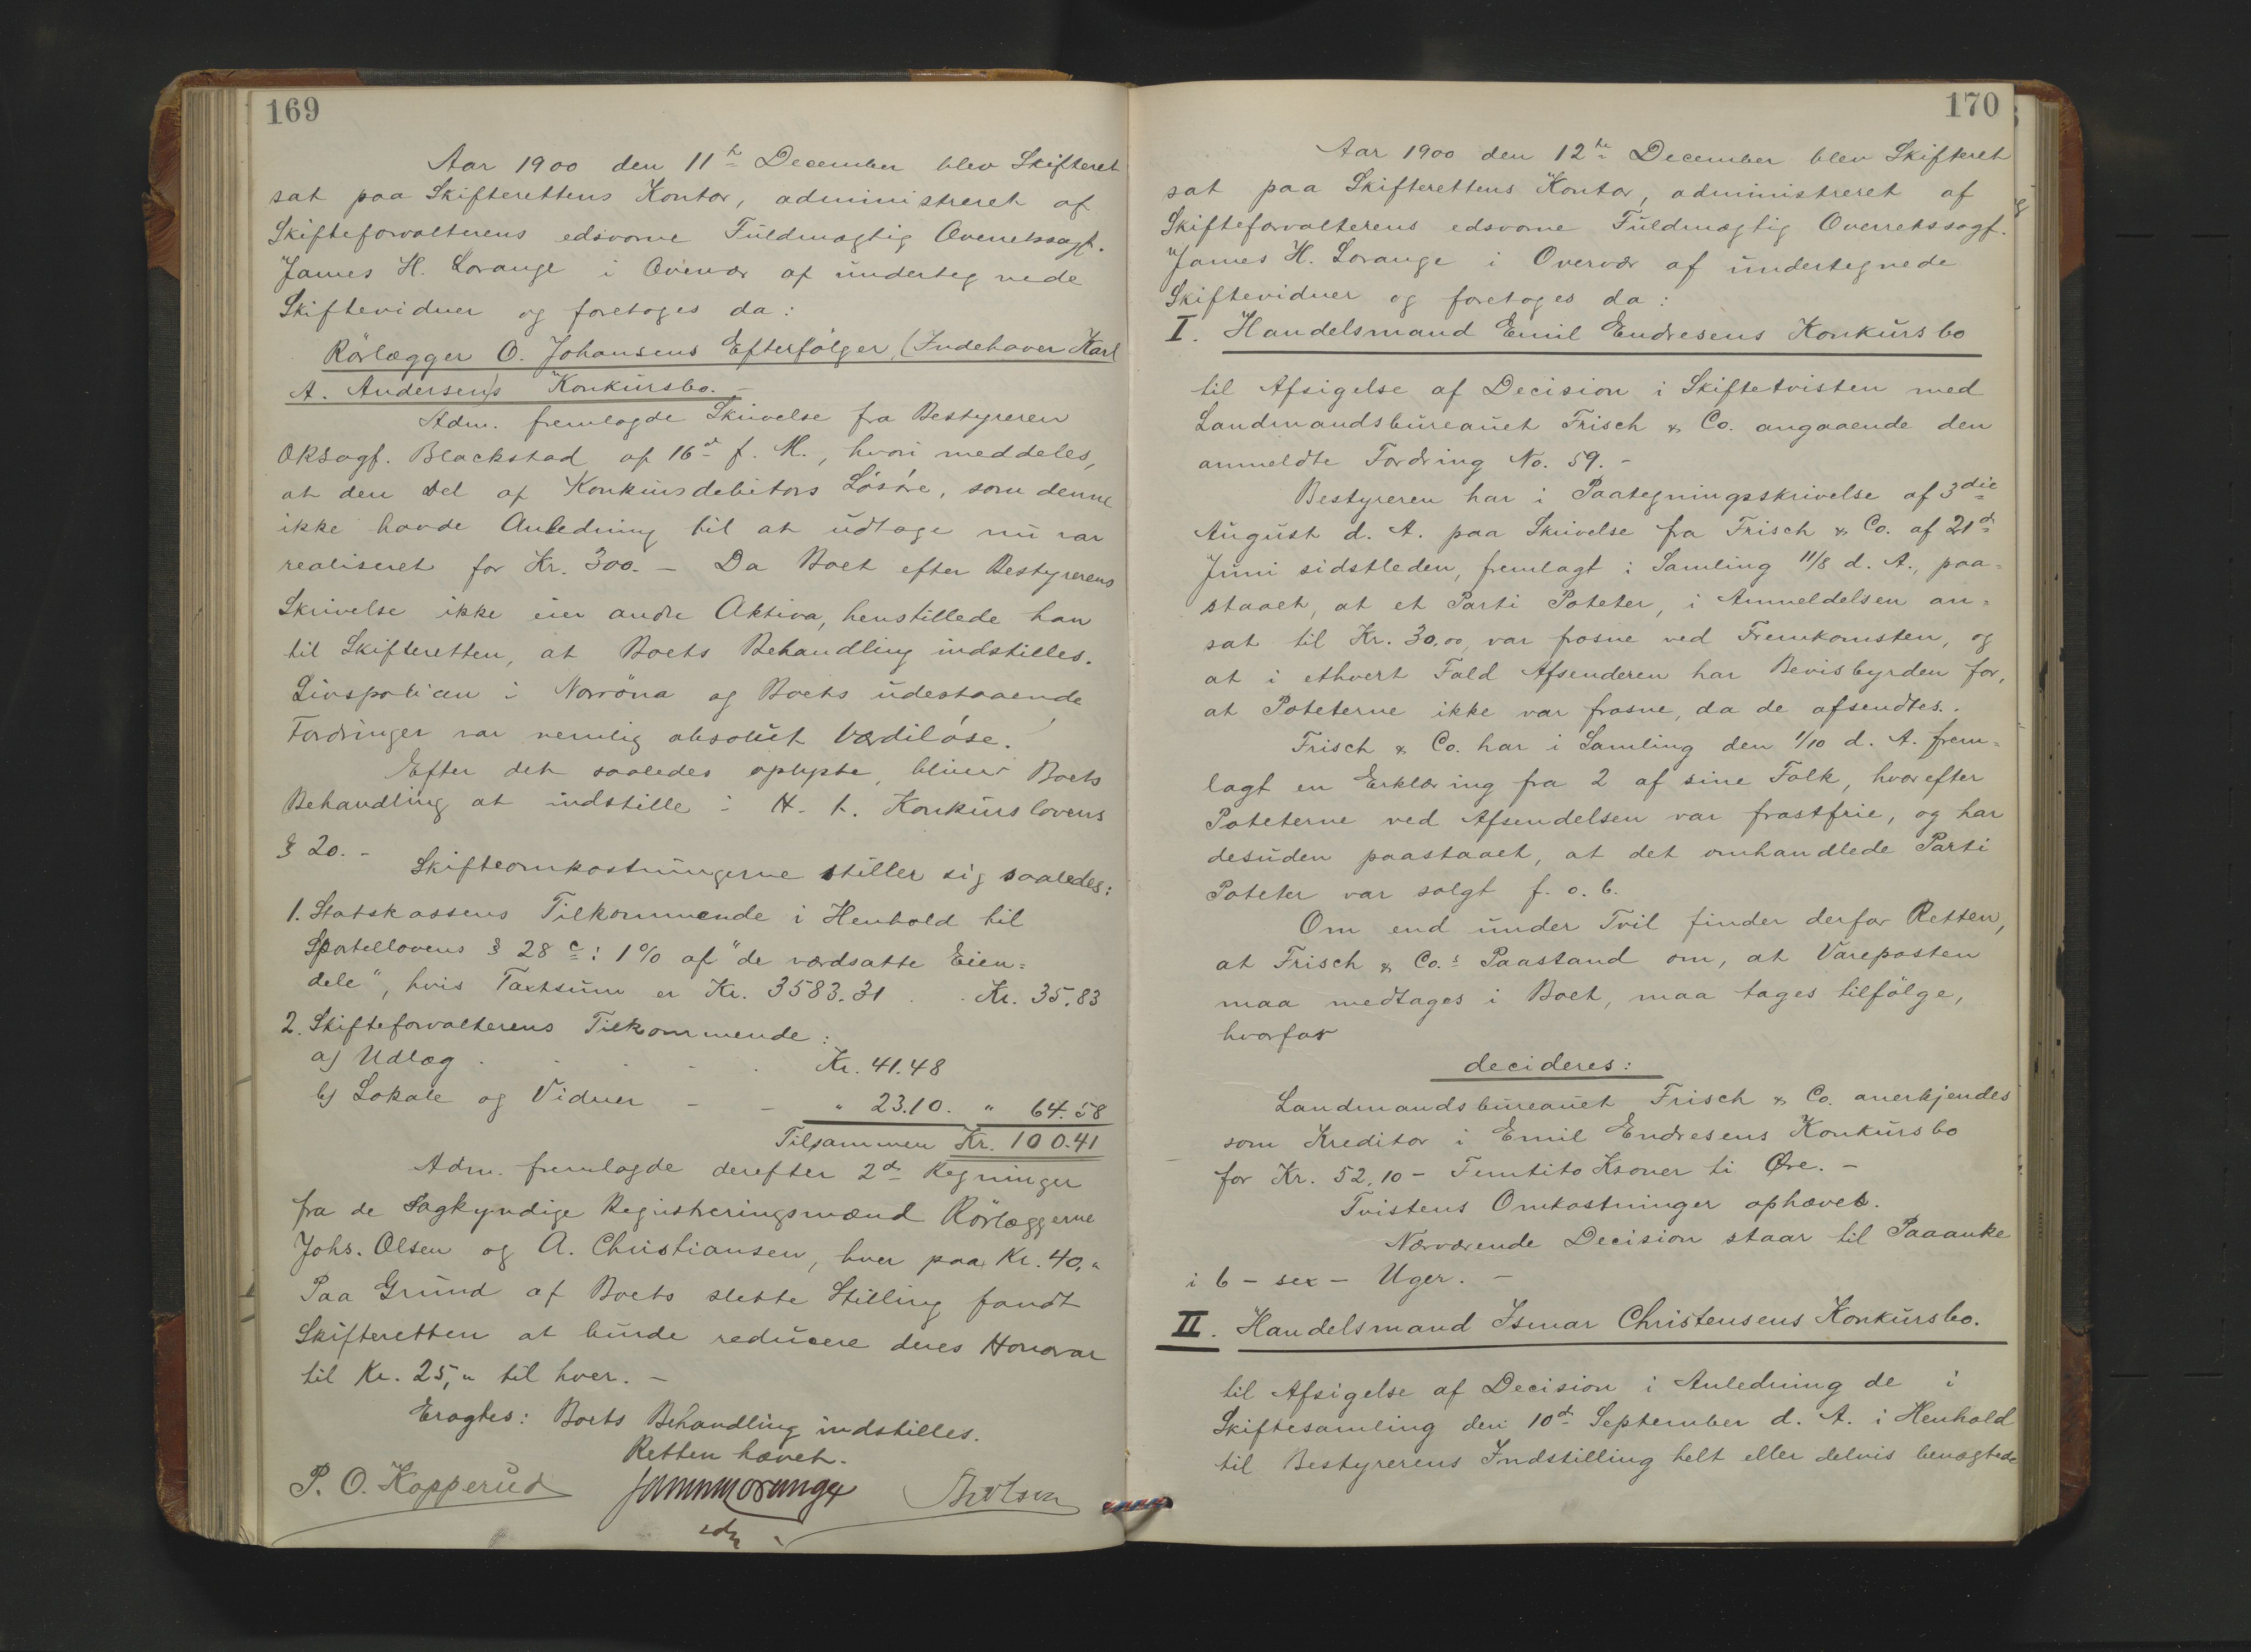 169
Aar 1900 den 11te December blev Skifteret
sat paa Skifterettens Kontor, administreret af
Skifteforvalterens edsvorne Fuldmægtig Overretssagf.
James H. Lorange i Overvær af underteg nede
Skiftevidner og foretoges da:
Rörlægger O. Johansens Efterfølger, (Indehaver Karl
A. Andersen)s Konkursbo. -
Adm. fremlagde Skrivelse fra Bestyreren
OKsagf. Blackstad af 16de f. M., hvori meddeles,
at den Del af Konkursdebitors Løsøre, som denne
ikke havde Anledning til at udtage nu var
realiseret for Kr. 300. - Da Boet efter Bestyrerens
Skrivelse ikke eier andre Aktiva, henstillede han
til Skifteretten, at Boets Behandling indstilles.
Livspolicen i Norröna og Boets udestaaende
Fordringer var nemlig absolut værdiløse.
Efter det saaledes oplyste, bliver Boets
Behandling at indstille i H. t. Konkurslovens
§ 20. -
Skifteomkostningerne stiller sig saaledes:
1. Statskassens Tilkommende i Henhold til
Sportellovens § 28 c: 1% af "de værdsatte Eien=
dele", hvis Taxtsum er Kr. 3583.31 . . Kr. 35.83
2. Skifteforvalterens Tilkommende:
a) Udlæg . . . . . Kr. 41.48
b) Lokale og Vidner - - " 23.10. " 64.58
Tilsammen Kr. 100.41
Adm. fremlagde derefter 2de Regninger
fra de sagkyndige Registreringsmænd Rörlæggerne
Johs. Olsen og A. Christiansen, hver paa Kr. 40,"
Paa Grund af Boets slette Stilling fandt
Skifteretten at burde reducere deres Honorar
til Kr. 25," til hver. -
Eragtes: Boets Behandling indstilles.
Retten hævet.
P. O. Kopperud
170
Aar 1900 den 12te December blev Skifteret
sat paa Skifterettens Kontor, administreret af
Skifteforvalterens edsvorne Fuldmægtig Overretssagf.
James H. Lorange i Overvær af undertegnede
Skiftevidner og foretoges da:
I. Handelsmand Emil Endresens Konkursbo
til Afsigelse af Decision i Skiftetvisten med
Landmandsbureauet Frisch & Co. angaaende den
anmeldte Fordring No. 59. -
Bestyreren har i Paategningsskrivelse af 3die
August d. A. paa Skrivelse fra Frisch & Co. af 21de
Juni sidstleden, fremlagt i Samling 11/8 d. A., paa=
staaet, at et Parti Poteter, i Anmeldelsen an=
sat til Kr. 30.00, var frosne ved Fremkomsten, og
at i ethvert Fald Afsenderen har Bevisbyrden for,
at Poteterne ikke var frosne, da de afsendtes.
Frisch & Co. har i Samling den 1/10 d. A. frem=
lagt en Erklæring fra 2 af sine Folk, hvorefter
Poteterne ved Afsendelsen var frostfrie, og har
desuden paastaaet, at det omhandlede Parti
Poteter var solgt f. o. b.
Om end under Tvil finder derfor Retten,
at Frisch & Co.s Paastand om, at Vareposten
maa medtages i Boet, maa tages tilfölge,
hvorfor
decideres:
Landmandsbureauet Frisch & Co. anerkjendes
som Kreditor i Emil Endresens Konkursbo
for Kr. 52,10 - Femtito Kroner ti Øre. -
Tvistens Omkostninger ophæves.
Nærværende Decision staar til Paaanke
i 6 - sex - Uger. -
II. Handelsmand Ismar Christensens Konkursbo.
til Afsigelse af Decision i Anledning de i
Skiftesamling den 10de September d. A. i Henhold
til Bestyrerens Indstilling helt eller delvis benægtede